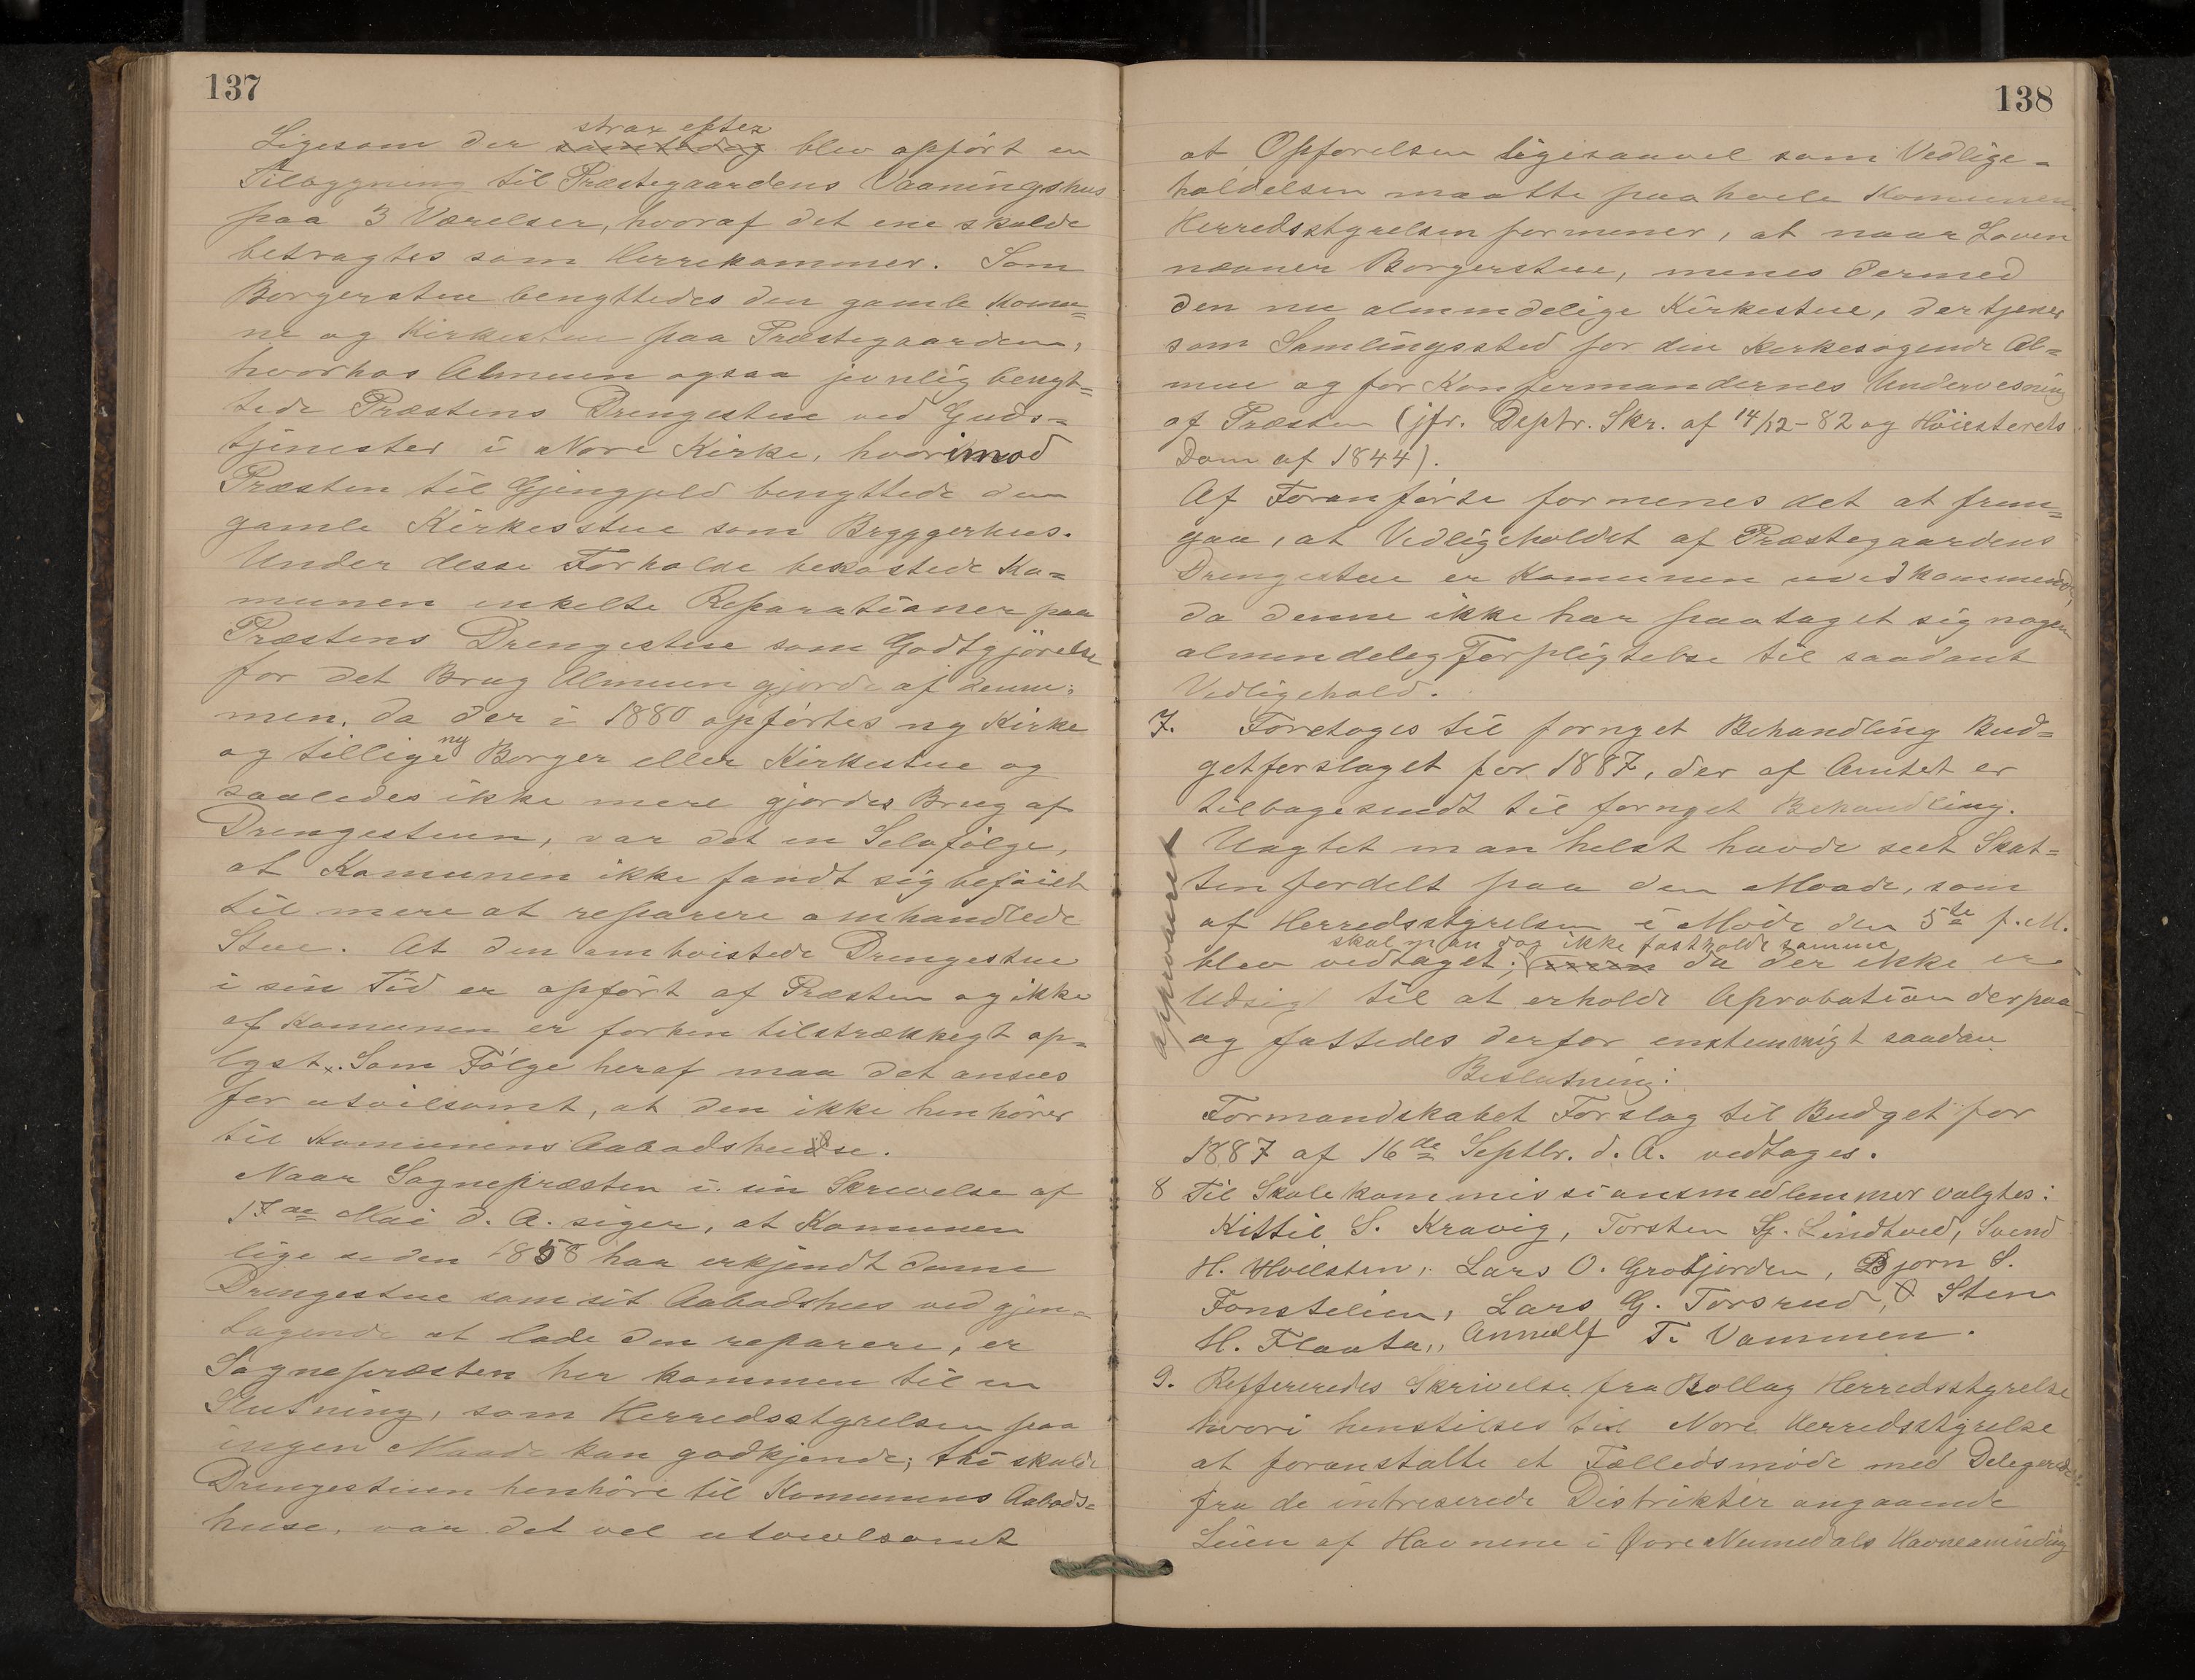 137
Ligesom der strax efter blev opført en
Tilbygning til Præstegaardens Vaaningshus
paa 3 Værelser, hvoraf det ene skulde
betragtes som Herrekammer. Som
Borgerstue benyttedes den gamle Komu=
ne og Kirkestue paa Præstegaarden,
hvorhos Almuen ogsaa jevnlig benyt=
tede Præstens Drengestue ved Guds=
tjenester i Nore Kirke, hvorimod
Præsten til Gjengjeld benyttede den
gamle Kirkesstue som Bryggerhus.
Under desse Forholde bekostede Ko=
munen enkelte Reparationer paa
Præstens Drengestue som Godtgjörelse
for det Brug Almuen gjorde af denne;
men, da der i 1880 opførtes ny Kirke
og tillige ny Borger eller Kirkestue og
saaledes ikke mere gjordes Brug af
Drengestuen, var det en Selvfölge,
at Komunen ikke fandt sig beföiet
til mere at reparere omhandlede
Stue. At den omtvistede Drengestue
i sin Tid er opfört af Præsten og ikke
af Komunen er forhen tilstrækkegt op=
lyst. Som Fölge heraf maa det ansees
for utvilsomt, at den ikke henhörer
til Komunens Aabodshuse.
Naar Sognepræsten i sin Skrivelse af
17de Mai d. A. siger, at Komunen
lige siden 1858 har erkjendt denne
Drengestue som sit Aabodshus ved gjen=
tagende at lade den reparere, er
Sognepræsten her kommen til en
Slutning, som Herredsstyrelsen paa
ingen Maade kan godkjende; thi skulde
Drengestuen henhöre til Komunens Aabods=
huse, var det vel utvivlsomt
138
at Opførelsen ligesaavel som Vedlige=
holdelsen maatte paahvile Komunen
Herredsstyrelsen formener, at naar Loven
nævner Borgerstue, menes dermed
den nu almindelige Kirkestue, der tjener
som Samlingssted for den kirkesøgende Al=
mue og for Konfermandernes Undervesning
af Præsten (jfr. Deptr. Skr. af 14/12-82 og Höiesterets
Dom af 1844).
Af Foranförte formenes det at frem=
gaa, at Vedligeholdet af Præstegaardens
Drengestue er Komunen uvedkommende,
da denne ikke har paataget sig nogen
almindeleg Forpligtelse til saadant
Vedligehold.
7. Foretoges til fornyet Behandling Bud=
getforslaget for 1887, der af Amtet er
tilbagesendt til fornyet Behandling.
Uagtet man helst havde seet Skat=
ten fordelt paa den Maade, som
af Herredsstyrelsen i Möde den 5te f. M.
blev vedtaget; skal man dog ikke fastholde samme da der ikke er
Udsigt til at erholde Aprobation derpaa
og fattedes derfor enstemmigt saadan
approberet
Beslutning:
Formandskabet Forslag til Budget for
1887 af 16de Septbr. d. A. vedtages.
8 Til Skolekommissionsmedlemmer valgtes:
Kittil S. Kravig, Torsten Sj. Lindtved, Svend
H. Hvilsten, Lars O. Grotjorden, Bjorn S.
Fonstelien, Lars G. Torsrud, Sten
H. Flaata, T. Vammen.
9. Reffereredes Skrivelse fra Rollag Herredsstyrelse
hvori henstilles til Nore Herredsstyrelse
at foranstalte et Fælledsmöde med Delegerede
fra de intreserede Distrikter angaaende
Leien af Havnene i Øvre Numedals Havneaminding